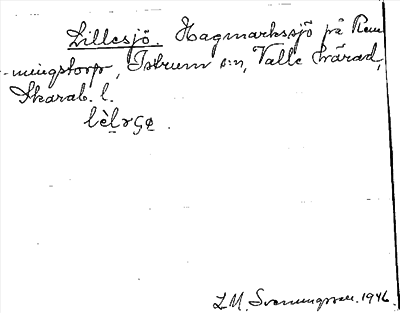 Lillesjö. Hagmarkssjö på Rem
-mingstorp, Istrum s:n, Valle härad,
Skarab. l.
L.M. Svenungsson. 1946.